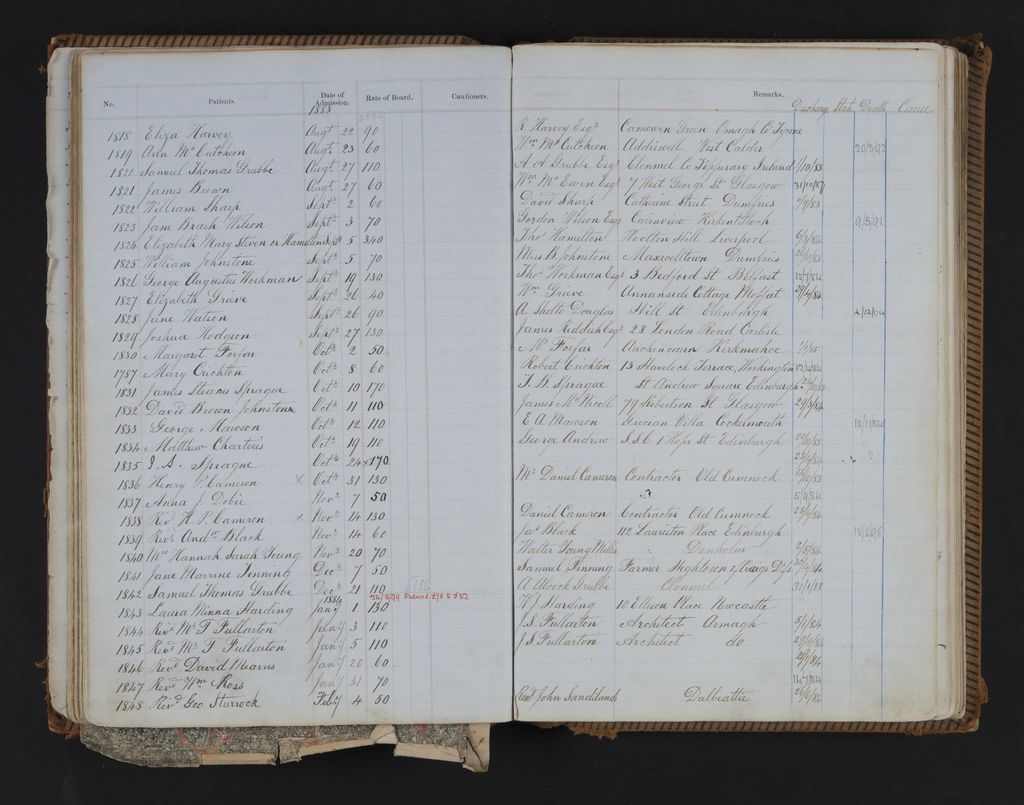 No. Patients. Date of Admission. Rate of Board. Cautioners. Remarks.
1883 Discharge State Death Cause
1818 Eliza Harvey Augt 22 90 R Harvey Esqr Camowen Green Omagh Co Tyrone
1819 Ann McCutcheon Augt 23 60 Wm McCutcheon Addiewell West Calder 20/3/92
1820 Samuel Thomas Grubbe Augt 27 110 A A Grubbe Esq Clonmel Co Tipperary Ireland 1/10/83
1821 James Brown Augt 27 60 Wm McEwen Esqr 7 West George St Glasgow 31/10/87
1822 William Sharp Sept 2 60 David Sharp Catherine Street Dumfries /9/83
1823 Jane Brash Wilson Sept 3 70 Gordon Wilson Esqr Cairnview Kirkintilloch 9/5/93
1824 Elizabeth Mary Steven or Hamilton Sept 5 340 Thos Hamilton Woolton Hill Liverpool 6/3/84
1825 William Johnstone Sept 5 70 Miss B Johnstone Maxwelltown Dumfries
1826 George Augustus Workman Sept 19 130 Thos Workman Esqr 3 Bedford St Belfast
1827 Elizabeth Grieve Sept 26 40 Wm Grieve Annanside Cottage Moffat 29/4/84
1828 Jane Watson Sept 26 90 A Sholto Douglas Hill St Edinburgh 4/12/04
1829 Joshua Hodgson Sept 27 130 James Reddish Esqr 28 London Road Carlisle
1830 Margaret Forfar Octr 2 50 Mr Forfar Auchencairn Kirkmahoe
1787 Mary Crichton Octr 8 60 Robert Crichton 13 Havelock Terrace, Workington 17/4/84
1831 James Stearns Sprague Octr 10 170 T. B. Sprague St Andrew Square Edinburgh
1832 David Brown Johnstone Octr 11 110 James McNicoll 79 Robertson St Glasgow 29/3/84
1833 George Mawson Octr 12 110 E A Mawson Grecian Villa Cockermouth 10/11/84
1834 Matthew Charteris Octr 19 110 George Andrew S.S.C. 1 Hope St Edinburgh
1835 J. A. Sprague Octr 24 x170
1836 Henry P. Cameron x Octr 31 130 Mr Daniel Cameron Contractor Old Cumnock
1837 Anna J. Dobie Novr 7 50 5/9/84
1838 Revd H. P. Cameron x Novr 14 130 Daniel Cameron Contractor Old Cumnock
1839 Revd Andw Black Novr 14 60 Jas Black 112 Lauriston Place Edinburgh 18/8/98
1840 Mrs Hannah Sarah Young Novr 20 70 Walter Young Miller Denholm 2/5/84
1841 Jane Maxrine Finning Decr 7 50 Samuel Finning Farmer Hightown of Craigs Dfs
1842 Samuel Thomas Grubbe Decr 21 110 A Alcock Grubbe Clonmel 31/1/88
1884 24/5/99 Reduced £90 to £52
1843 Laura Minna Harding Jany 1 130 W J Harding 10 Ellison Place Newcastle
1844 Revd Mr T Fullarton Jany 3 110 J S. Fullarton Architect Armagh 5/1/84
1845 Revd Mr T Fullarton Jany 5 110 J S Fullarton Architect do
1846 Revd David Mearns Jany 20 60
1847 Revd Wm Ross Jany 31 70 14/7/84
1848 Revd Geo Sturrock Feby 4 50 Revd John Sandilands Dalbeattie